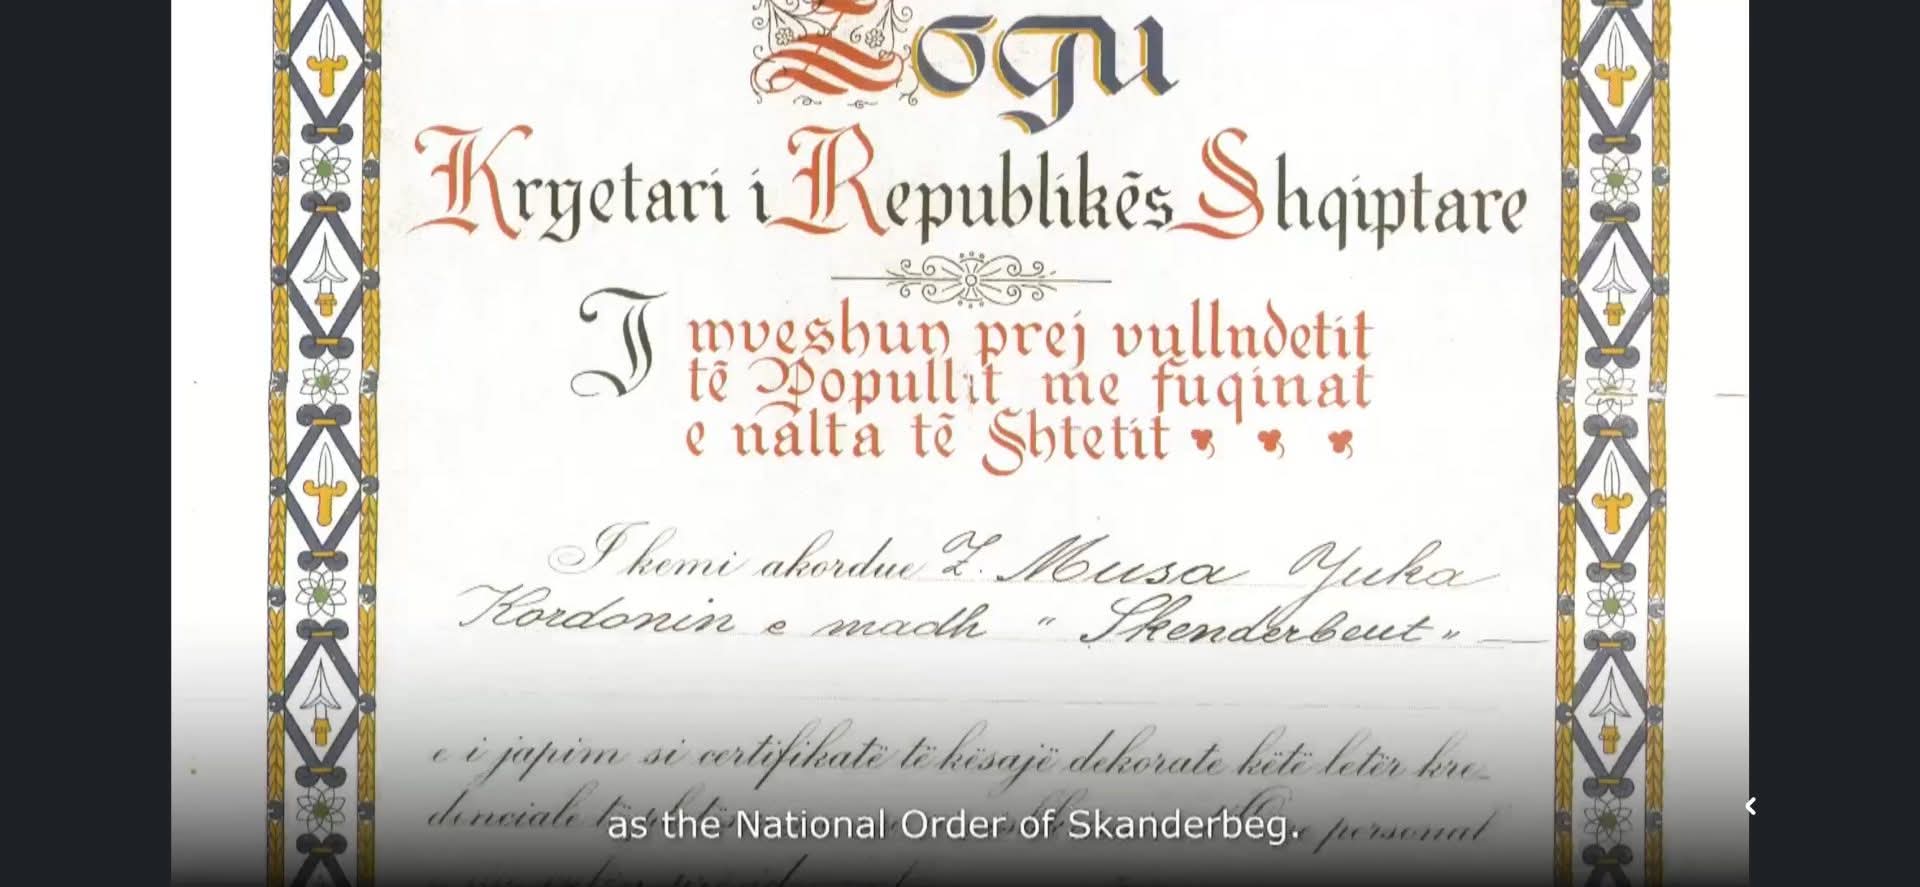 Zogu
Kryetari i Republikēs Shqiptare
I mveshun prej vullndetit
tē Popullit me fuqinat
e nalta tē Shtetit
I kemi akordue Z. Musa Yuka
Kordonin e madh " Skenderbeut "
e i japim si certifikatë të kësajë dekorate këtë letër kre-
denciale personal
as the National Order of Skanderbeg.